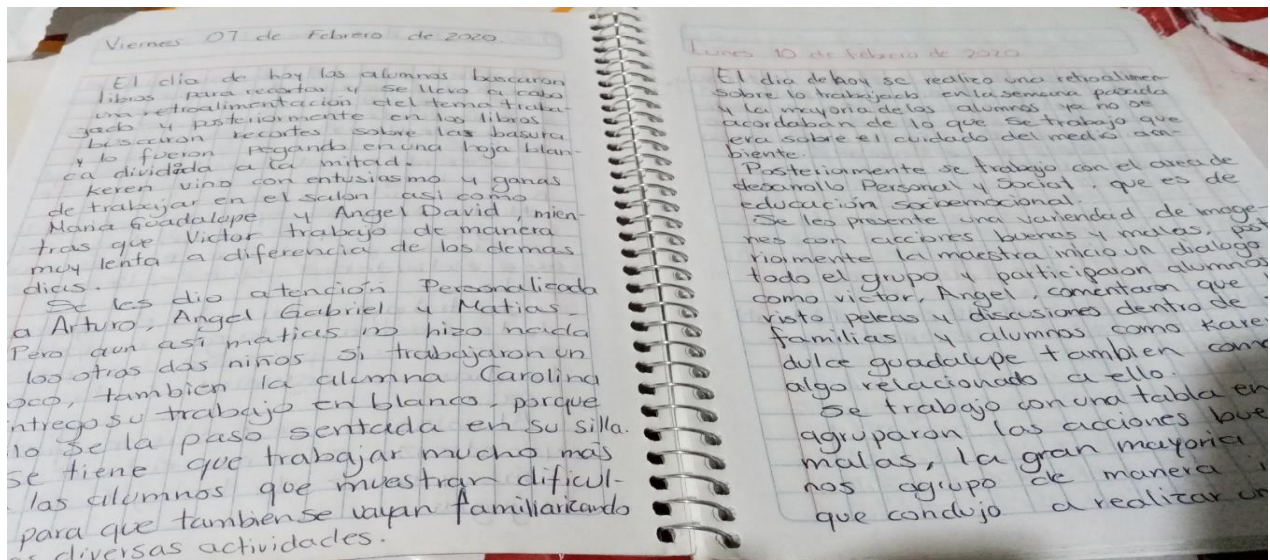 Viernes 07 de Febrero de 2020.
El dia de hoy los alumnos buscaron
libros para recortar y se llevo a cabo
una retroalimentacion del tema traba-
jado y posteriormente en los libros
buscaron recortes sobre las basura
y lo fueron pegando en una hoja blan-
ca dividida a la mitad.
Keren vino con entusiasmo y ganas
de trabajar en el salon asi como
Maria Guadalupe y Angel David, mien-
tras que Victor trabajo de manera
muy lenta a diferencia de los demas
dias.
Se les dio atención Personalicada
a Arturo, Angel Gabriel y Matias.
Pero aun asi matias no hizo nada
los otros dos niños si trabajaron un
oco, tambien la alumna Carolina
ntrego su trabajo en blanco, porque
lo se la paso sentada en su silla.
se tiene que trabajar mucho más
las alumnos que muestran dificul-
para que tambien se vayan familiaricando
diversas actividades.
Lunes 10 de febrero de 2020
El dia de hoy se realizo una retroalimen
sobre lo trabajado en la semana pasada
y la mayoria de los alumnos ya no se
acordaban de lo que se trabajo que
era sobre el cuidado del medio am-
biente.
Posteriormente se trabajo con el area de
desarrollo Personal y Social, que es de
educación socioemocional.
Se les presente una variendad de image-
nes con acciones buenas y malas, post
riormente la maestra inicio un dialogo
todo el grupo y participaron alumnos
como victor, Angel, comentaron que
visto peleas y discusiones dentro de
familias y alumnos como Kare
dulce guadalupe tambien come
algo relacionado a ello.
Se trabajo con una tabla en
agruparon las acciones bue
malas, la gran mayoria
nos agrupo de manera
que condujo a realizar un